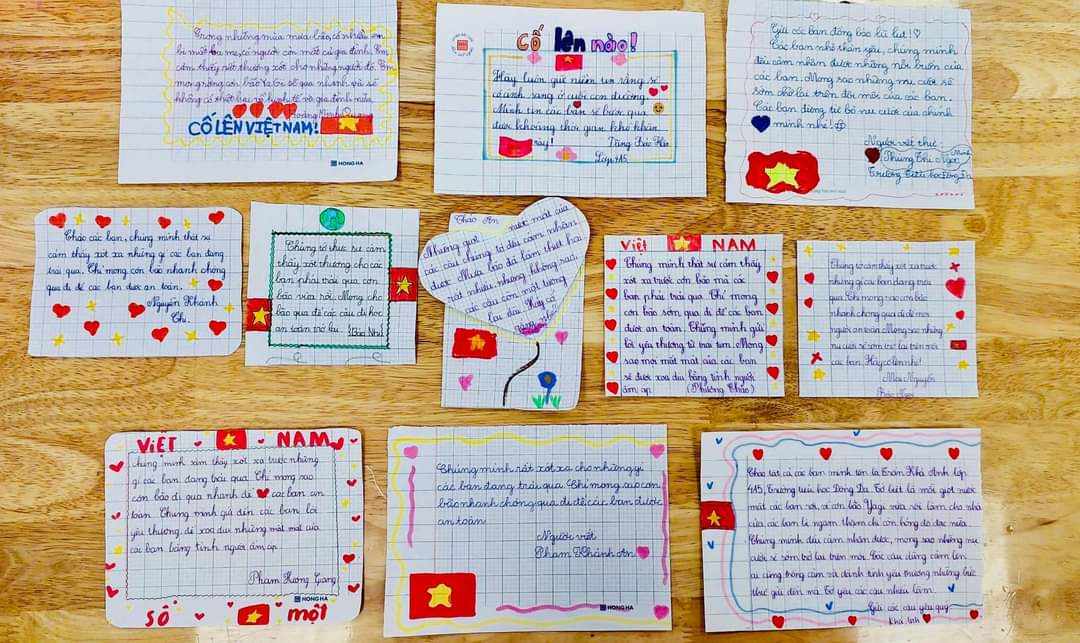 Trong những mùa mưa bão, có nhiều em
bị mất ba mẹ, có người còn mất cả gia đình. Em
cảm thấy rất thương xót cho những người đó. Em
mong rằng cơn bão Yagi sẽ qua nhanh và sẽ
không có thiệt hại về kinh tế và gia đình nữa.
Hoàng Minh
CỐ LÊN VIỆT NAM!
HONG HA
Cố lên nào!
Hãy luôn giữ niềm tin rằng sẽ
có ánh sáng ở cuối con đường.
Mình tin các bạn sẽ vượt qua
được khoảng thời gian khó khăn
này!
Tăng Bảo Hân
Lớp 4A5
Gửi các bạn đồng bào lũ lụt!
Các bạn nhỏ thân yêu, chúng mình
đều cảm nhận được những nỗi buồn của
các bạn. Mong sao những nụ cười sẽ
sớm trở lại trên đôi môi của các bạn.
Các bạn đừng từ bỏ nụ cười của chính
mình nhé!
Người viết thư
Phùng Thị Ngọc Minh
Trường Tiểu học Đống Đa
Chào các bạn, chúng mình thật sự
cảm thấy xót xa những gì các bạn đang
trải qua. Chỉ mong cơn bão nhanh chóng
qua đi để các bạn được an toàn.
Nguyễn Khánh
Chi.
Chúng tớ thực sự cảm
thấy xót thương cho các
bạn phải trải qua cơn
bão vừa rồi. Mong cho
bão qua để các cậu đi học
an toàn trở lại.
Bảo Nhi
Thảo An
Những giọt nước mắt của
các cậu chúng tớ đều cảm nhận
được. Mưa bão đã làm thiệt hại
rất nhiều nhưng không sao,
các cậu còn một tương
lai dài. Hãy cố
gắng nhé!
Việt NAM
Chúng mình thật sự cảm thấy
xót xa trước cơn bão mà các
bạn phải trải qua. Chỉ mong
cơn bão sớm qua đi để các bạn
được an toàn. Chúng mình gửi
lời yêu thương từ trái tim. Mong
sao mọi mất mát của các bạn
sẽ được xoa dịu bằng tình người
ấm áp. (Phương Thảo)
Chúng tớ cảm thấy xót xa trước
những gì các bạn đang trải
qua. Chỉ mong sao cơn bão
nhanh chóng qua đi để mọi
người an toàn. Mong sao những
nụ cười sẽ sớm trở lại trên môi
các bạn. Hãy cố lên nhé!
Mều Nguyễn
Bảo Ngọc
VIỆT NAM
Chúng mình cảm thấy xót xa trước những
gì các bạn đang trải qua. Chỉ mong sao
cơn bão đi qua nhanh để các bạn an
toàn. Chúng mình gửi đến các bạn lời
yêu thương, để xoa dịu những mất mát của
các bạn bằng tình người ấm áp.
Phạm Hương Giang
HONG HA
SỐ một
Chúng mình rất xót xa cho những gì
các bạn đang trải qua. Chỉ mong sao cơn
bão nhanh chóng qua đi để các bạn được
an toàn.
Người viết
Phạm Khánh An
HONG HA
Chào tất cả các bạn mình tên là Trần Khả Anh lớp
4A5, Trường tiểu học Đống Đa. Tớ biết là mỗi giọt nước
mắt các bạn rơi, vì cơn bão Yagi vừa rồi làm cho nhà
của các bạn bị ngập thậm chí còn hỏng đồ đạc nữa.
Chúng mình đều cảm nhận được, mong sao những nụ
cười sẽ sớm trở lại trên môi. Các cậu đừng cảm lên
ai cũng trông cảm và dành tình yêu thương những bức
thư gửi đến mà. Tớ yêu các cậu nhiều lắm.
Gửi các cậu yêu quý
Khả Anh